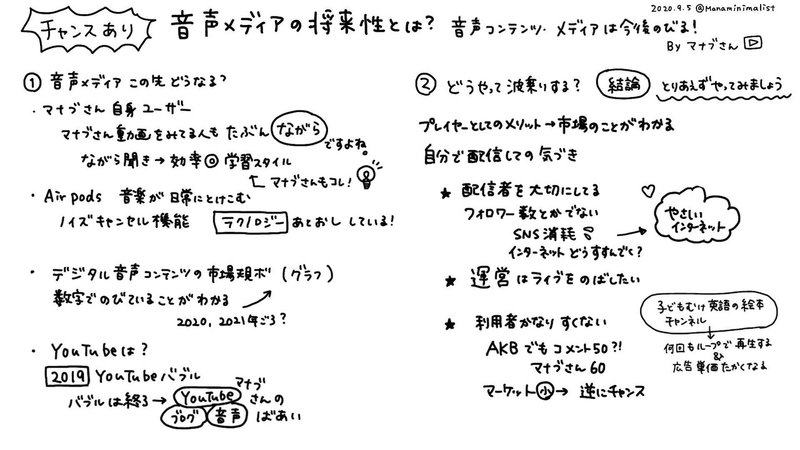 チャンスあり
音声メディアの将来性とは?
2020.9.5 @Manaminimalist
音声コンテンツ・メディアは今後のびる!
By マナブさん
① 音声メディア この先 どうなる?
・マナブさん 自身 ユーザー
マナブさん動画をみてる人も たぶん ながら ですよね。
ながら聞き → 効率◎ 学習スタイル
マナブさんもコレ!
・Air pods 音楽が日常にとけこむ
ノイズキャンセル機能 テクノロジー あとおし している!
・デジタル音声コンテンツの市場規ボ (グラフ)
数字でのびていることがわかる
2020, 2021年ごろ?
・YouTubeは?
2019 YouTubeバブル
バブルは終る → YouTube マナブさんの
ブログ 音声 ばあい
② どうやって波乗りする? 結論 とりあえずやってみましょう
プレイヤーとしてのメリット → 市場のことがわかる
自分で配信しての気づき
★ 配信者を大切にしてる
フォロワー数とかでない
SNS 消耗
インターネットどうすすんでく?
やさしい
インターネット
★ 運営はライブをのばしたい
★ 利用者かなりすくない
AKBでもコメント50?!
マナブさん 60
マーケット 小 → 逆にチャンス
子どもむけ英語の絵本
チャンネル
何回もループで再生する
&
広告単価たかくなる